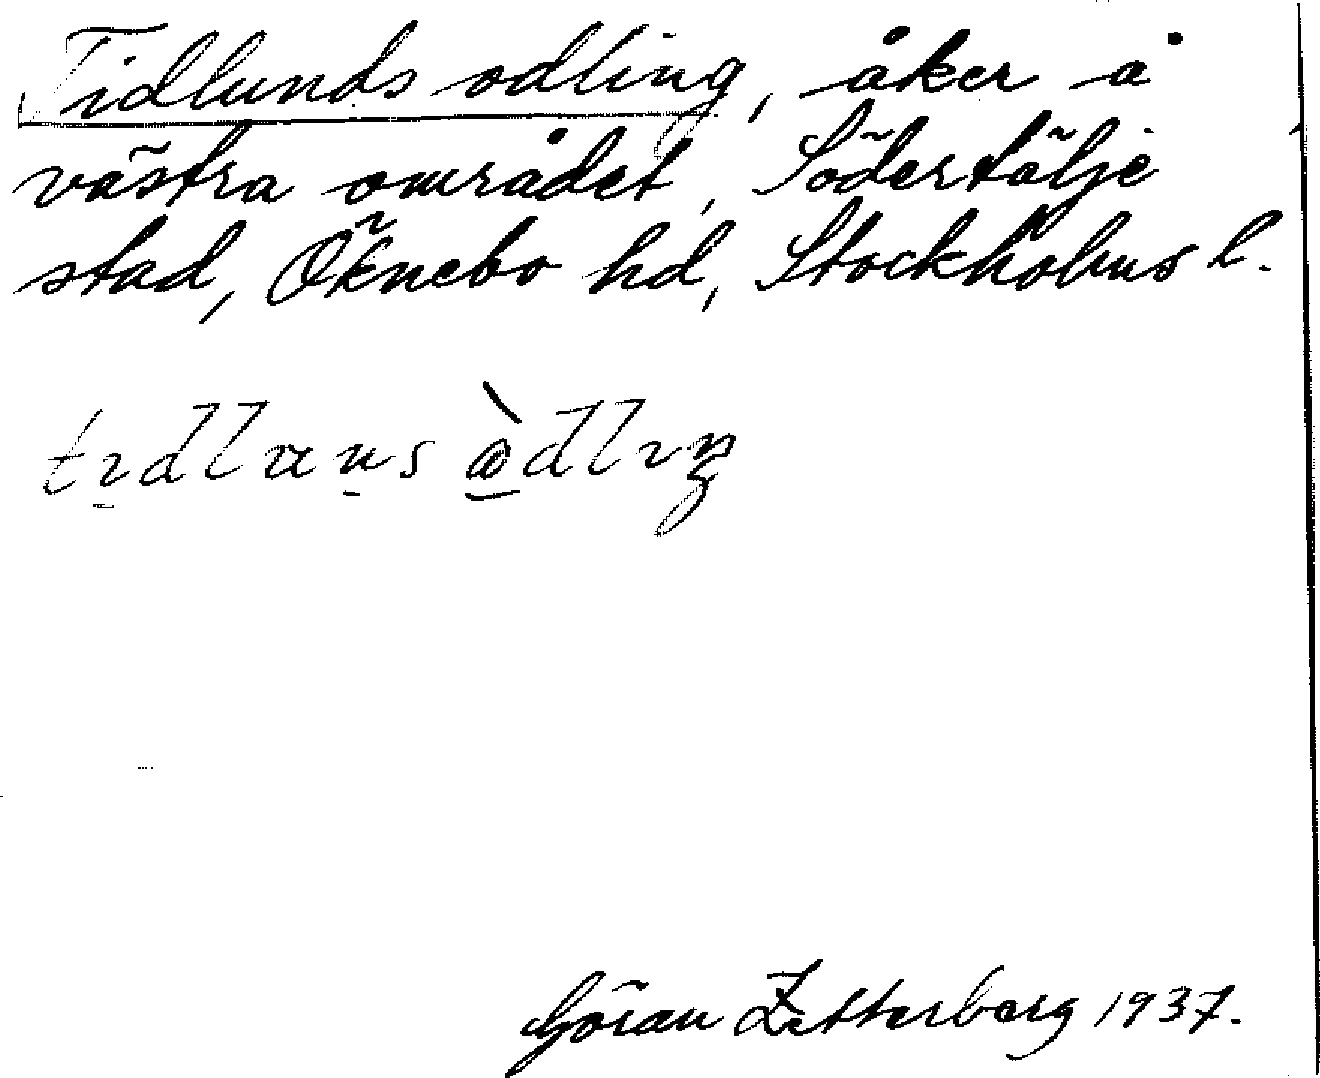 Tidlunds odling, åker å
västra området, Södertälje
stad, Öknebo hd, Stockholms l.
Göran Zetterberg 1937.